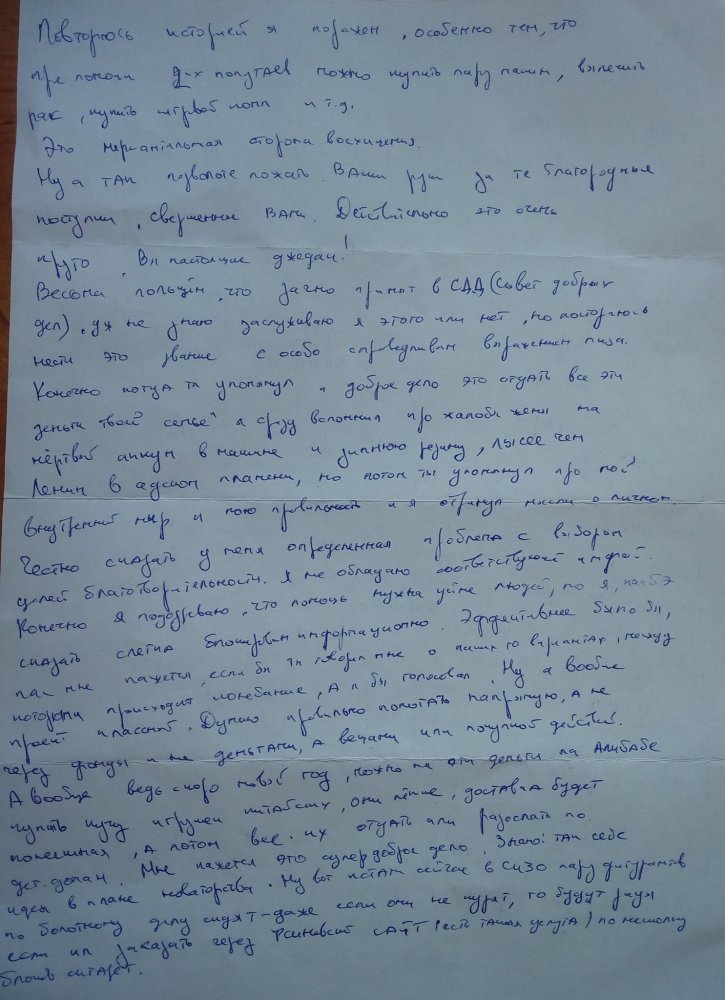 Повторюсь историей я поражен, особенно тем, что
при помощи 2-х попугаев можно купить пару машин, вылечить
рак, купить игровой комп и т.д.
Это меркантильная сторона восхищения.
Ну а так позвольте пожать Ваши руки за те благородные
поступки, свершенные Вами. Действительно это очень
круто, Вы настоящие джедаи!
Весьма польщён, что заочно принят в СДД (Совет добрых
дел), уж не знаю заслуживаю я этого или нет, но постараюсь
нести это звание с особо справедливым выражением лица.
Конечно когда ты упомянул "доброе дело это отдать все эти
деньги твоей семье" я сразу вспомнил про жалобы жены на
мёртвый аккум в машине и зимнюю резину, лысее чем
Ленин в адском пламени, но потом ты упомянул про мой
внутренний мир и мою правильность и я отринул мысли о личном.
Честно сказать у меня определенная проблема с выбором
целей благотворительности. Я не обладаю соответствующей инфой.
Конечно я подозреваю, что помощь нужна уйме людей, но я, как бэ
сказать слегка блокирован информационно. Эффективнее было бы,
как мне кажется, если бы ты говорил мне о каких то вариантах, между
которыми происходит колебание, а я бы голосовал. Ну а вообще
проект классный. Думаю правильно помогать напрямую, а не
через фонды и не деньгами, а вещами или покупкой действий.
А вообще ведь скоро новый год, можно на эти деньги на Алибабе
купить кучу игрушек китайских, они лёгкие, доставка будет
копеечная, а потом все их отдать или разослать по
дет. домам. Мне кажется это супер доброе дело. Знаю: так себе
идея в плане новаторства. Ну вот кстати сейчас в СИЗО пару фигурантов
по болотному делу сидят - даже если они не курят, то будут рады
если им заказать через ФСИНовский сайт (есть такая услуга) по нескольку
блоков сигарет.